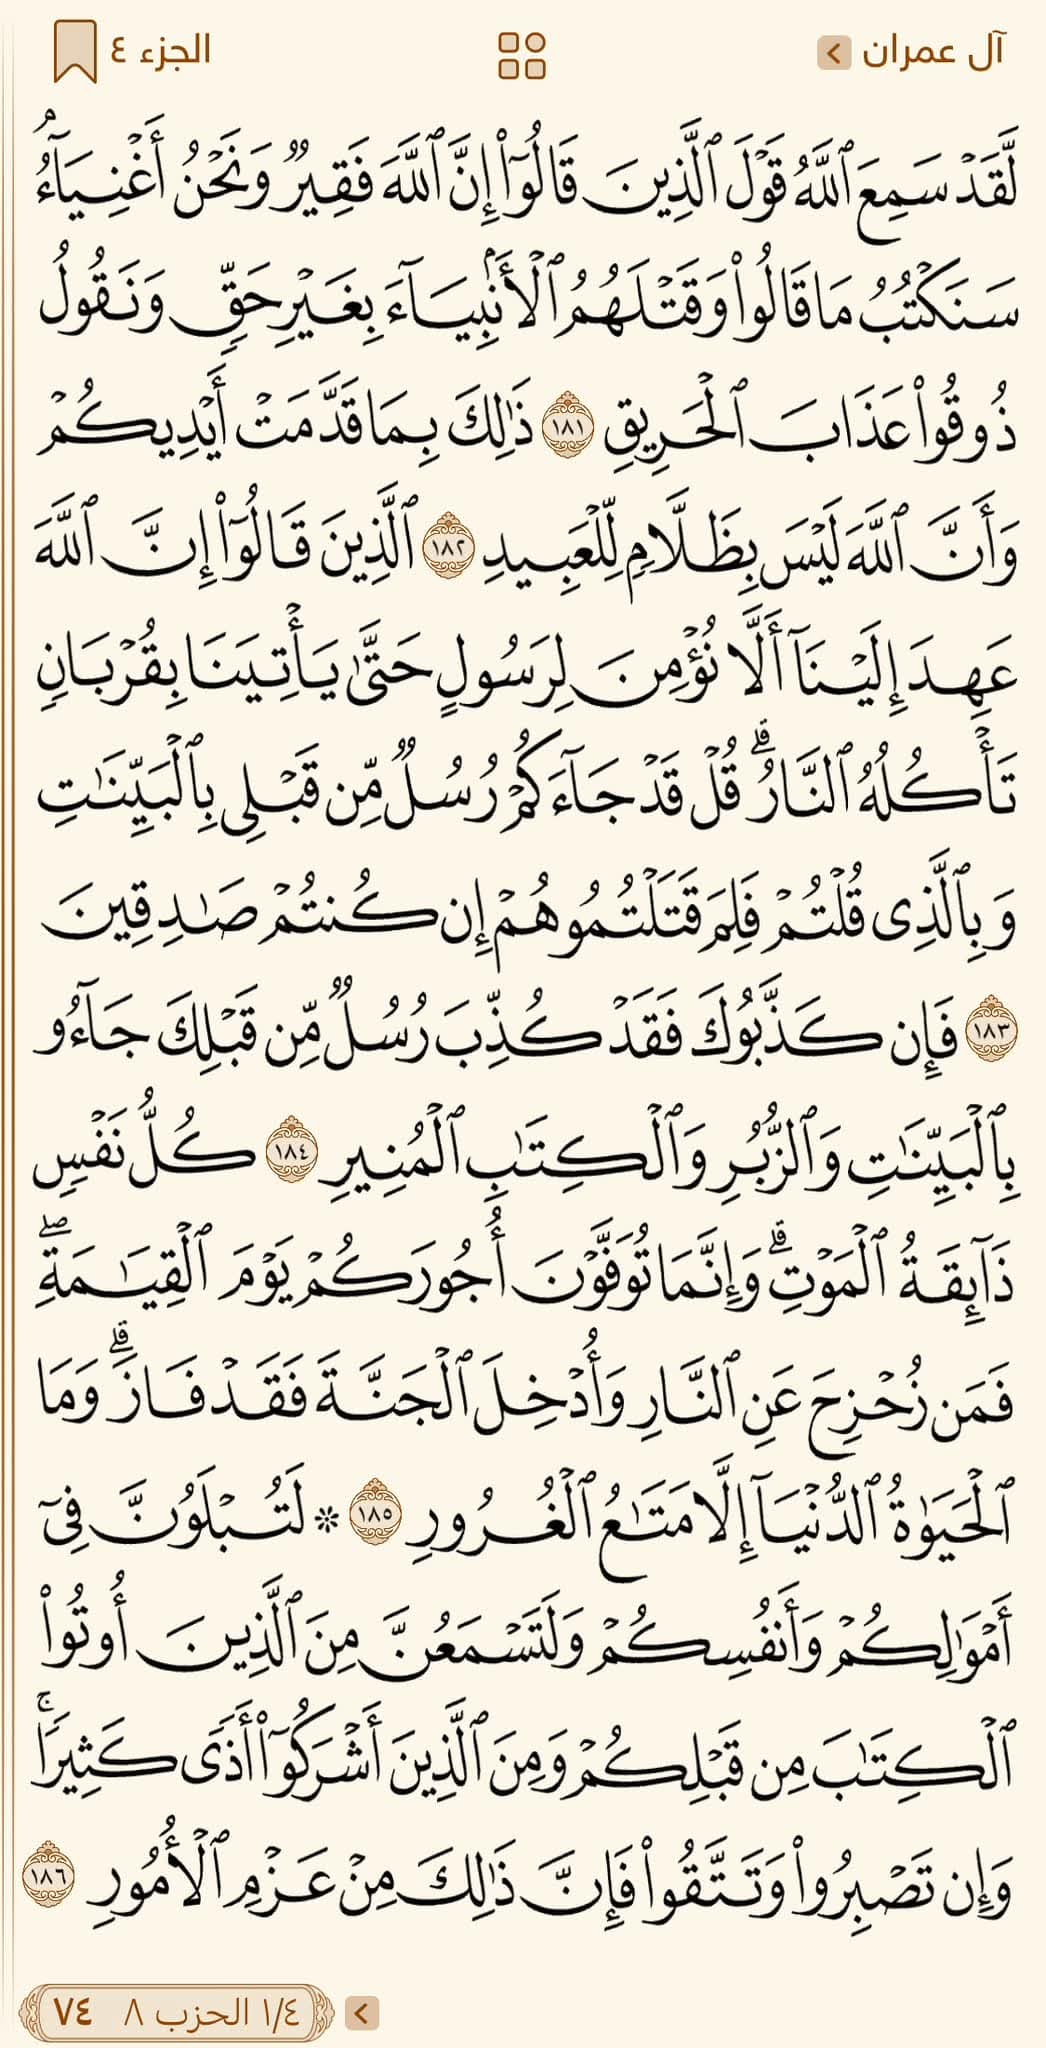 آل عمران
الجزء ٤
لَّقَدۡ سَمِعَ ٱللَّهُ قَوۡلَ ٱلَّذِينَ قَالُوٓاْ إِنَّ ٱللَّهَ فَقِيرٞ وَنَحۡنُ أَغۡنِيَآءُۘ
سَنَكۡتُبُ مَا قَالُواْ وَقَتۡلَهُمُ ٱلۡأَنۢبِيَآءَ بِغَيۡرِ حَقّٖ وَنَقُولُ
ذُوقُواْ عَذَابَ ٱلۡحَرِيقِ ١٨١ ذَٰلِكَ بِمَا قَدَّمَتۡ أَيۡدِيكُمۡ
وَأَنَّ ٱللَّهَ لَيۡسَ بِظَلَّامٖ لِّلۡعَبِيدِ ١٨٢ ٱلَّذِينَ قَالُوٓاْ إِنَّ ٱللَّهَ
عَهِدَ إِلَيۡنَآ أَلَّا نُؤۡمِنَ لِرَسُولٍ حَتَّىٰ يَأۡتِيَنَا بِقُرۡبَانٖ
تَأۡكُلُهُ ٱلنَّارُۗ قُلۡ قَدۡ جَآءَكُمۡ رُسُلٞ مِّن قَبۡلِي بِٱلۡبَيِّنَٰتِ
وَبِٱلَّذِي قُلۡتُمۡ فَلِمَ قَتَلۡتُمُوهُمۡ إِن كُنتُمۡ صَٰدِقِينَ
١٨٣ فَإِن كَذَّبُوكَ فَقَدۡ كُذِّبَ رُسُلٞ مِّن قَبۡلِكَ جَآءُو
بِٱلۡبَيِّنَٰتِ وَٱلزُّبُرِ وَٱلۡكِتَٰبِ ٱلۡمُنِيرِ ١٨٤ كُلُّ نَفۡسٖ
ذَآئِقَةُ ٱلۡمَوۡتِۗ وَإِنَّمَا تُوَفَّوۡنَ أُجُورَكُمۡ يَوۡمَ ٱلۡقِيَٰمَةِۖ
فَمَن زُحۡزِحَ عَنِ ٱلنَّارِ وَأُدۡخِلَ ٱلۡجَنَّةَ فَقَدۡ فَازَۗ وَمَا
ٱلۡحَيَوٰةُ ٱلدُّنۡيَآ إِلَّا مَتَٰعُ ٱلۡغُرُورِ ١٨٥ ۞ لَتُبۡلَوُنَّ فِيٓ
أَمۡوَٰلِكُمۡ وَأَنفُسِكُمۡ وَلَتَسۡمَعُنَّ مِنَ ٱلَّذِينَ أُوتُواْ
ٱلۡكِتَٰبَ مِن قَبۡلِكُمۡ وَمِنَ ٱلَّذِينَ أَشۡرَكُوٓاْ أَذٗى كَثِيرٗاۚ
وَإِن تَصۡبِرُواْ وَتَتَّقُواْ فَإِنَّ ذَٰلِكَ مِنۡ عَزۡمِ ٱلۡأُمُورِ ١٨٦
١/٤ الحزب ٨ ٧٤